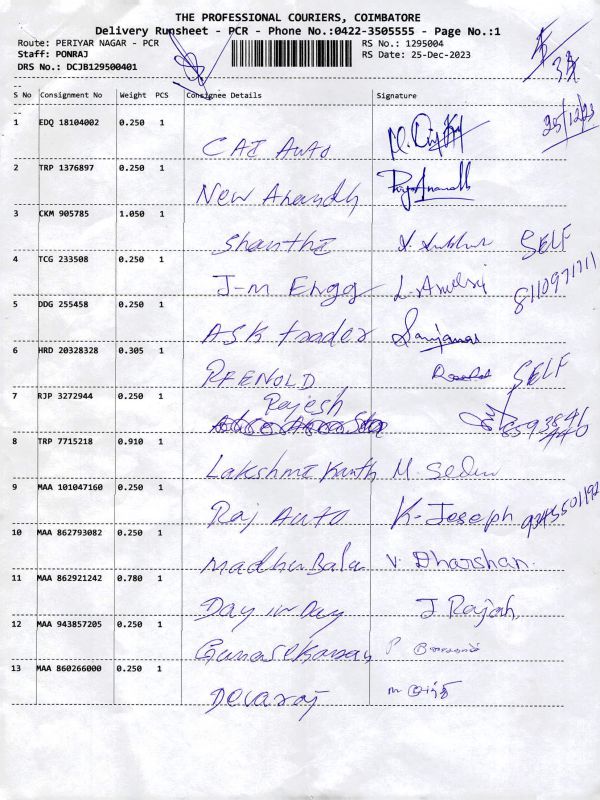 THE PROFESSIONAL COURIERS, COIMBATORE
Delivery Runsheet - PCR - Phone No.:0422-3505555 - Page No.:1
Route: PERIYAR NAGAR - PCR RS No.: 1295004
Staff: PONRAJ RS Date: 25-Dec-2023
DRS No.: DCJB129500401
S No Consignment No Weight PCS Consignee Details Signature
25/12/23
1 EDQ 18104002 0.250 1
CAI Auto
2 TRP 1376897 0.250 1
New Anandh
3 CKM 905785 1.050 1
Shanthi SELF
4 TCG 233508 0.250 1
J-m Engg 8110971711
5 DDG 255458 0.250 1
ASK trader Sanjana
6 HRD 20328328 0.305 1
RFENOLD SELF
7 RJP 3272944 0.250 1
Rajesh
8 TRP 7715218 0.910 1
Lakshmi Kanth
9 MAA 101047160 0.250 1
Raj Auto K. Joseph
10 MAA 862793082 0.250 1
Madhu Bala V. Dharshan.
11 MAA 862921242 0.780 1
Day in Day J Rajah
12 MAA 943857205 0.250 1
Gunasekaran
13 MAA 860266000 0.250 1
Devaraj